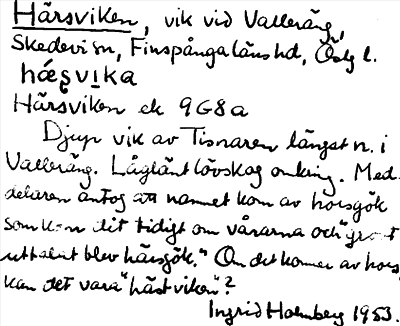 Härsviken, vik vid Valleräng,
Skedevi sn, Finspångaläns hd, Östg l.
hæʂvika
Härsviken ek 9G8a
Djup vik av Tisnaren längst n. i
Valleräng. Låglänt lövskog omkring. Med-
delaren antog att namnet kom av horsgök
som kom dit tidigt om vårarna och "grovt
uttalat blev härsgök." Om det kommer av hors,
kan det vara "hästviken"?
Ingrid Holmberg 1953.